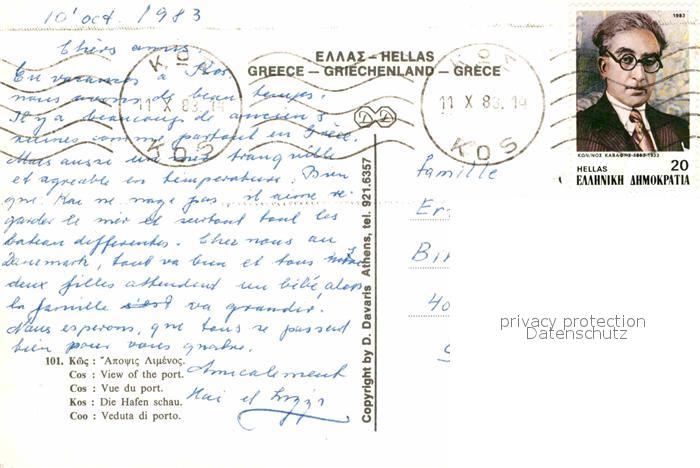 10' oct. 1983
Chers amis.
En vacances à Kos,
nous avons de beau temps.
Il y a beaucoup de anciens
ruines comme partout en Grèce.
Mais aussi un tranquille
et agreable en temperature. Bien
que Kai ne nage pas, il aime re-
garder le mer et surtout tout les
bateau differentes. Chez nous au
Danemark, tout va bien et tous
deux filles attendent un bébé, alors
la famille va grandir.
Nous esperons, que tous se passent
bien pour vous quatre.
Amicalement
Kai et
ΕΛΛΑΣ – HELLAS
GREECE – GRIECHENLAND – GRÈCE
ΚΩΣ
11 X 83. 14
KOS
ΚΩΣ
11 X 83. 14
KOS
1983
ΚΩΝ/ΝΟΣ ΚΑΒΑΦΗΣ 1863-1933
HELLAS 20
ΕΛΛΗΝΙΚΗ ΔΗΜΟΚΡΑΤΙΑ
Famille
Er
Bi
40
privacy protection
Datenschutz
Copyright by D. Davaris Athens, tel. 921.6357
101. Κῶς : Ἄποψις Λιμένος.
Cos : View of the port.
Cos : Vue du port.
Kos : Die Hafen schau.
Coo : Veduta di porto.